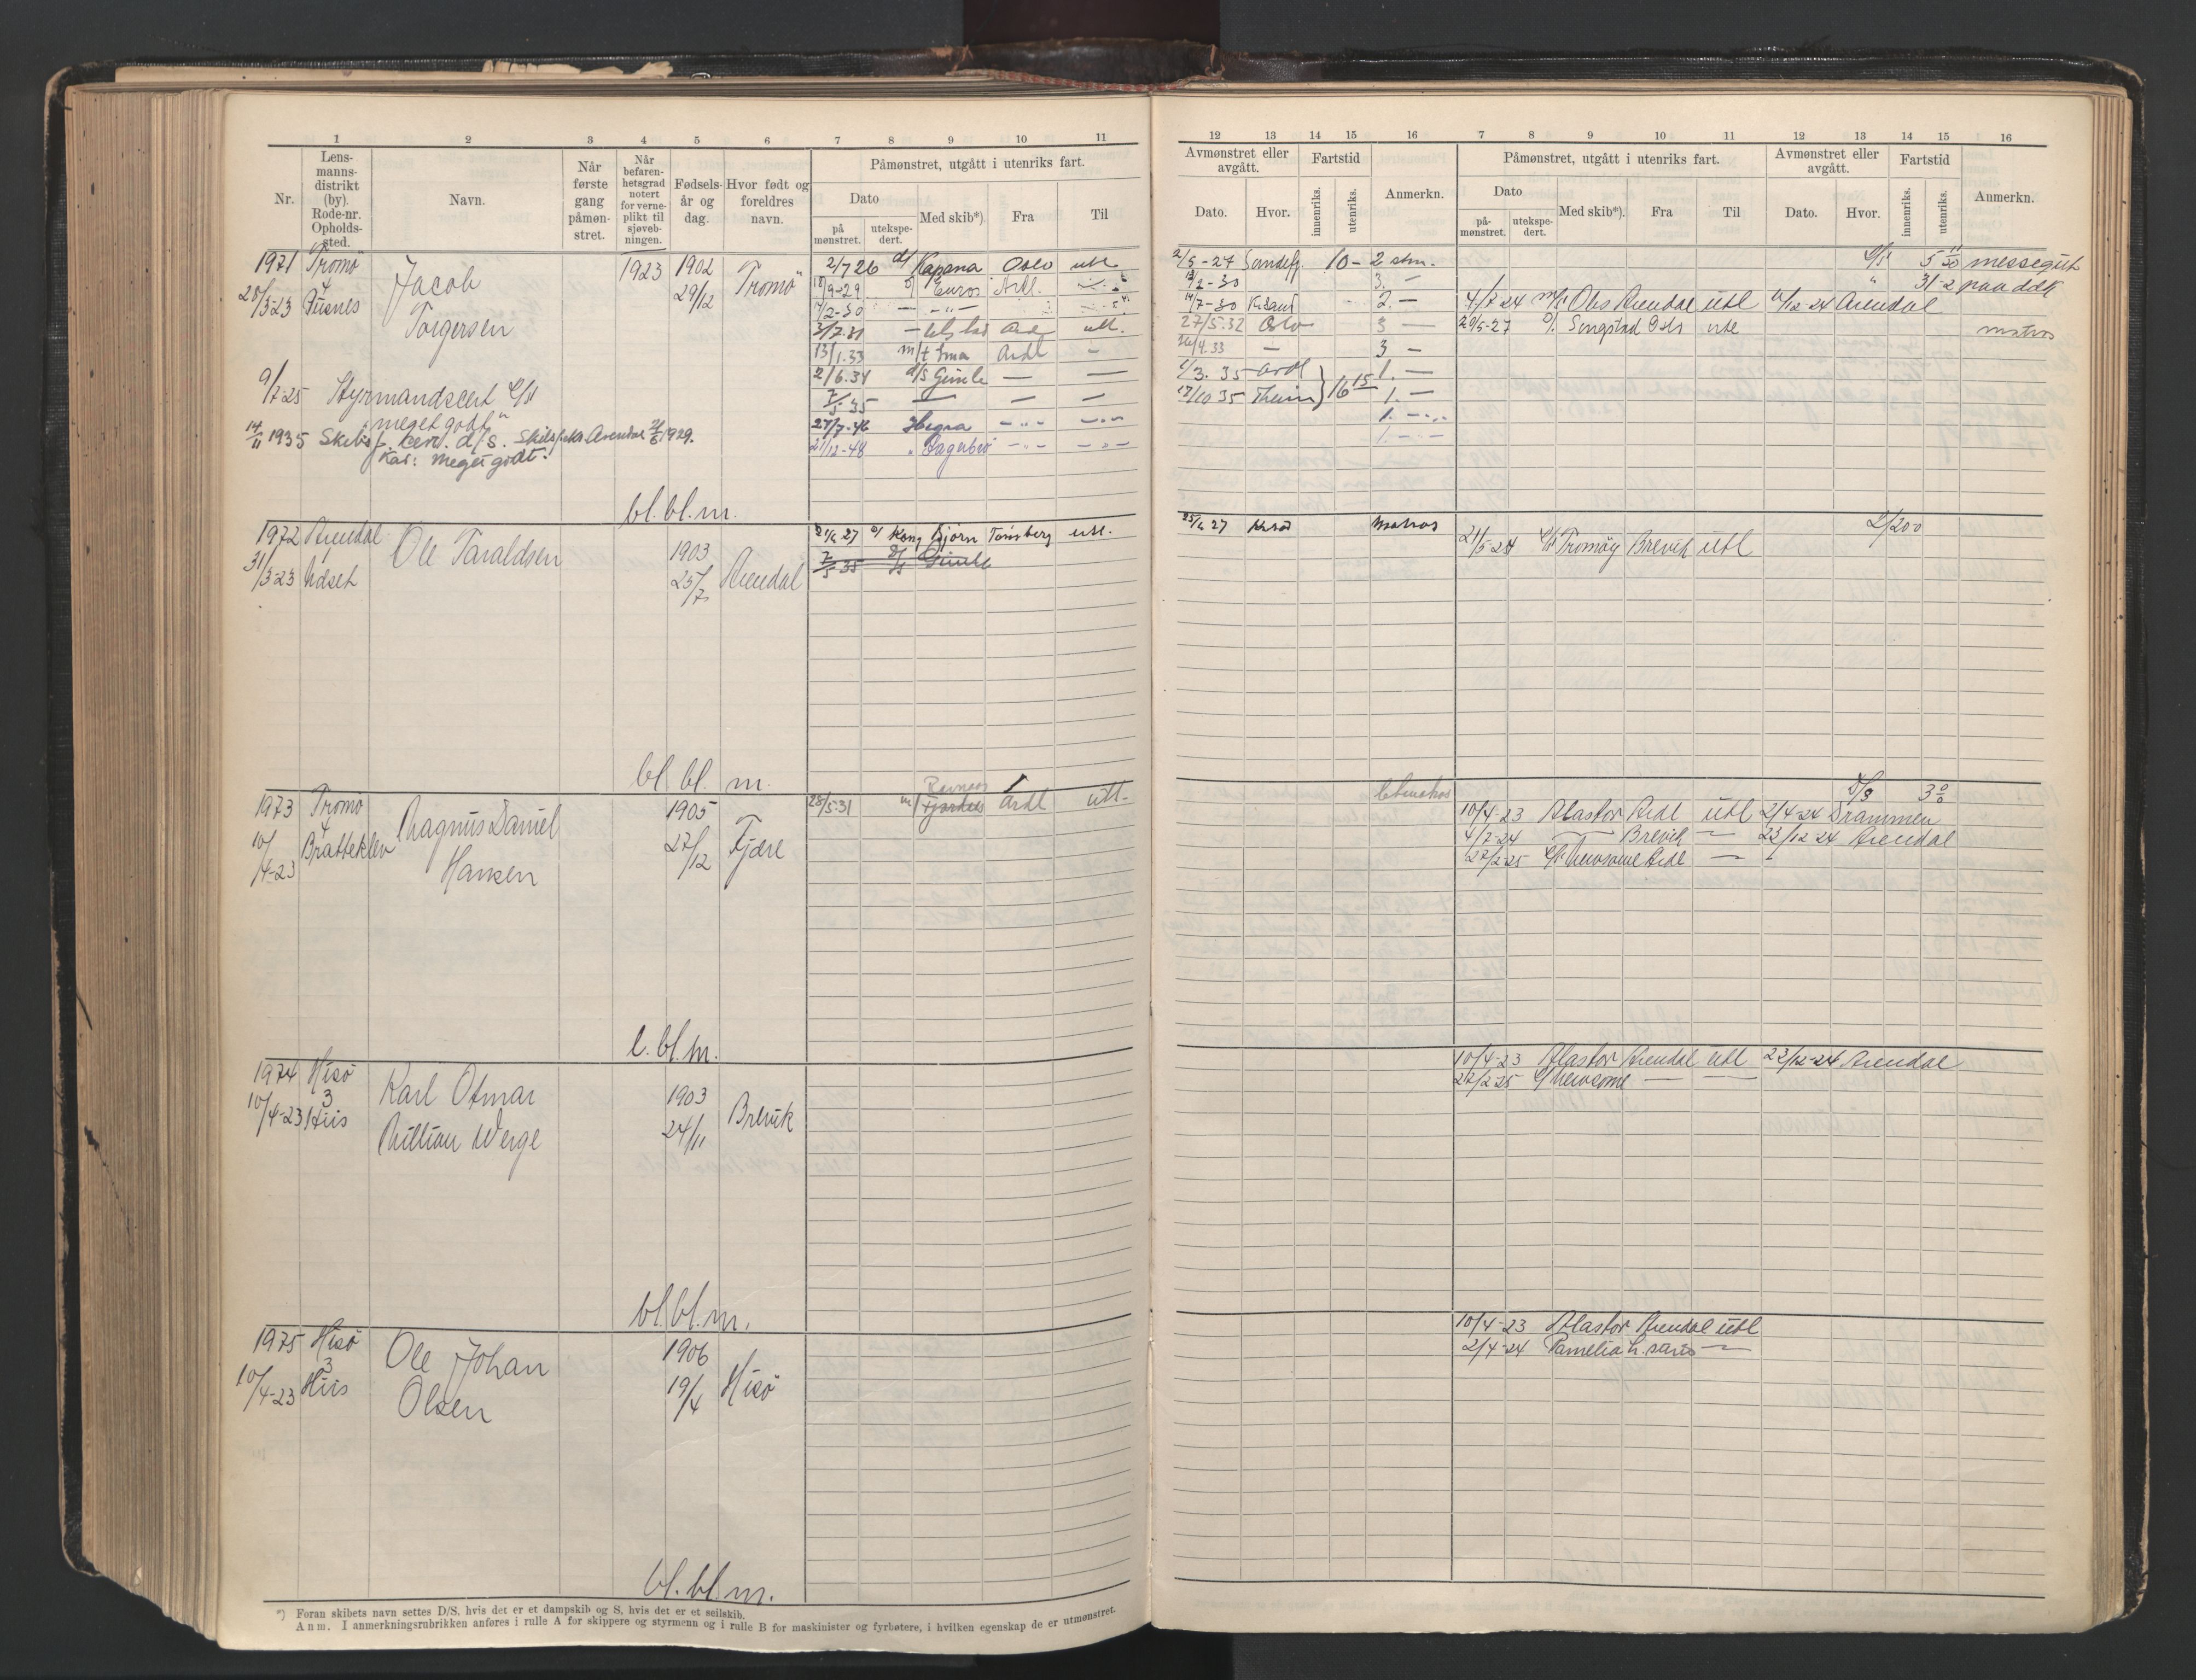 1 2 3 4 5 6 7 8 9 10 11
Nr.
Lens-
manns-
distrikt
(by).
Rode-nr.
Opholds-
sted.
Navn.
Når
første
gang
påmøn-
stret.
Når
befaren-
hetsgrad
notert
for verne-
plikt til
sjøveb-
ningen.
Fødsels-
år og
dag.
Hvor født og
foreldres
navn.
Påmønstret, utgått i utenriks fart.
Dato
på
mønstret.
utekspe-
dert.
Med skib*).
Fra
Til
1971 Tromø
4
20/3-23 Pusnes
Jacob
Torgersen
1923
1902
29/12
Tromø
2/7 26 d/ Kapana Oslo utl.
18/9-29 Euros Ardl.
14/2-30
3/7.31 Ard utl.
13/1.33 m/t Ima Ardl -
2/6.34 d/s Gimle — —
7/5 35 — — —
27/7-46 Hegra -"- -"-
21/12-48 -"- -"-
9/7-25 Styrmandscert
"meget godt"
14/11 1935 Arendal 1929.
Kar: meget godt.
bl. bl. m.
1972 Arendal
31/3-23 Udset
Ole Taraldsen
1903
25/7
Arendal
27 Kong Bjørn Tønsberg utl.
7/5 35 d/s Gimle
bl. bl. m.
1973 Tromø
4
10/4-23 Bratteklev
Magnus Daniel
Hansen
1905
27/12
Fjære
Ravnaas
28/5.31 m/ Fjordaas Ardl utl.
l. bl. m.
1974 Hisø
3
10/4-23 His
Karl Otmar
William Werge
1903
24/11
Brevik
bl. bl. m.
1975 Hisø
3
10/4-23 His
Ole Johan
Olsen
1906
19/4
Hisø
bl. bl. m.
*) Foran skibets navn settes D/S, hvis det er et dampskib og S, hvis det er et seilskib.
Anm. I anmerkningsrubrikken anføres i rulle A for skippere og styrmenn og i rulle B for maskinister og fyrbøtere, i hvilken egenskap de er utmønstret.
12 13 14 15 16 7 8 9 10 11 12 13 14 15 16
Avmønstret eller
avgått.
Dato.
Hvor.
Fartstid
innenriks.
utenriks.
Anmerkn.
Påmønstret, utgått i utenriks fart.
Dato
på-
mønstret.
utekspe-
dert.
Med skib*).
Fra
Til
Avmønstret eller
avgått.
Dato.
Hvor.
Fartstid
innenriks.
utenriks.
Anmerkn.
2/5-27 Sandefj. 10- 2 stm.
messegut
/2-30 3. -
14/7-30 K.sand 2. —
4/7 24 m/s Obs Arendal utl /12-24 Arendal
27/5.32 Oslo 3 —
20/5-27 Songstad Oslo utl
matros
26/4.33 — 3 —
1/3. 35 Ardl 1. —
17/10 35 16 15 1. —
1. -"-
1. -"-
25/ 27 matros
21/5-24 Tromøy Brevik utl
2/200
10/4-23 Alastor Ardl utl 2/4-24 Drammen
4/7-24 — Brevik — 23/12 24 Arendal
27/2-25 Newsome Ardl —
10/4-23 Alastor Arendal utl 23/12-24 Arendal
27/2 25 Newsome — —
10/4-23 Alastor Arendal utl
2/4-24 Pamelia —